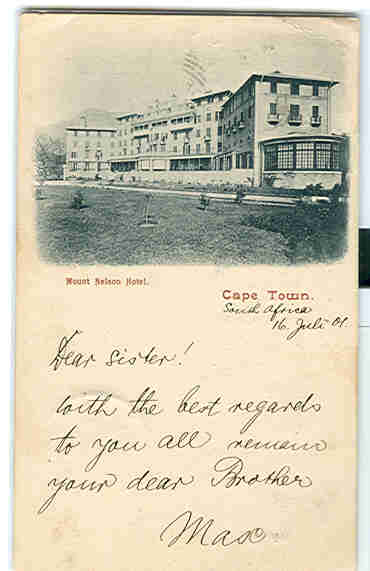 Mount Nelson Hotel.
Cape Town.
South Africa
16. Juli 01.
Dear sister!
with the best regards
to you all remain
your dear Brother
Max